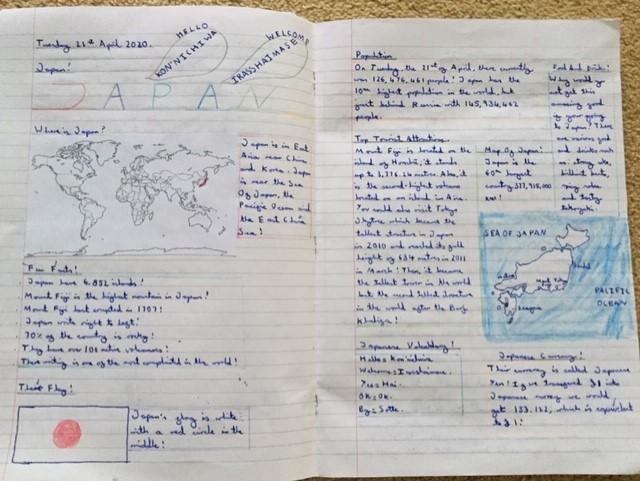 Tuesday 21st April 2020.
HELLO
KONNICHIWA
WELCOME
IRASSHAIMASE
Japan!
JAPAN
Where is Japan?
Japan is in East
Asia near China
and Korea. Japan
is near the Sea
Of Japan, the
Pacific Ocean and
the East China
Sea!
Fun Facts!
Japan have 6,852 islands!
Mount Fiji is the highest mountain in Japan!
Mount Fiji last erupted in 1707!
Japan write right to left!
70% of the country is rocky!
They have over 108 active volcanoes!
Their writing is one of the most complicated in the world!
Their Flag!
Japan's flag is white
with a red circle in the
middle!
Population
On Tuesday, the 21st of April, there currently
was 126,476,461 people! Japan has the
10th highest population in the world, but
just behind Russia with 145,934,462
people.
Top Tourist Attractions
Mount Fiji is located on the
island of Honshu; it stands
up to 3,776.24 metres. Also, it
is the second-highest volcano
located on an island in Asia.
You could also visit Tokyo
Skytree which became the
tallest structure in Japan
in 2010 and reached its full
height of 634 metres in 2011
in March! Then, it became
the tallest tower in the world
but the second tallest structure
in the world after the Burj
Khalifa!
Japanese Vocabulary!
Hello = Konnichiwa
Welcome = Irasshaimase.
Yes = Hai.
OK = OK.
By =
Food And Drink!
Why would you
not get this
amazing food
if your going
to Japan? There
are various food
and drinks such
as: strong sake,
brilliant
and tasty
takoyaki.
Map Of Japan!
Japan is the
60th largest
country 377,915,000
km!
SEA OF JAPAN
PACIFIC
OCEAN
Japanese Currency!
Their currency is called Japanese
Yen! If we transferred £1 into
Japanese money we would
get 133.122, which is equivalent
to £1!